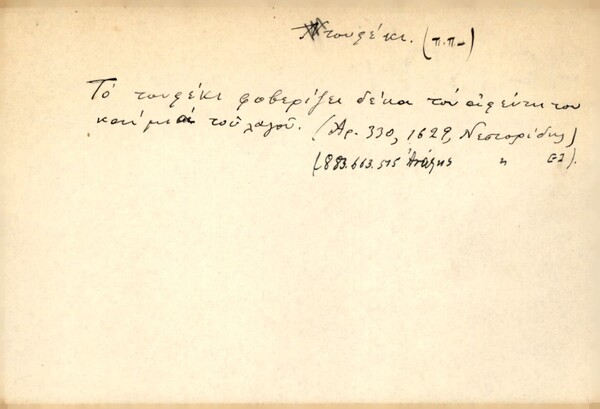 τουφέκι. (π.π.)
Τό τουφέκι φοβερίζει δέκα τόν ἀφεύτη του
καί μιά τοῦ λαγοῦ. (Αρ. 330, 1629, Νεστορίδης)
(883.663.515 " GZ).